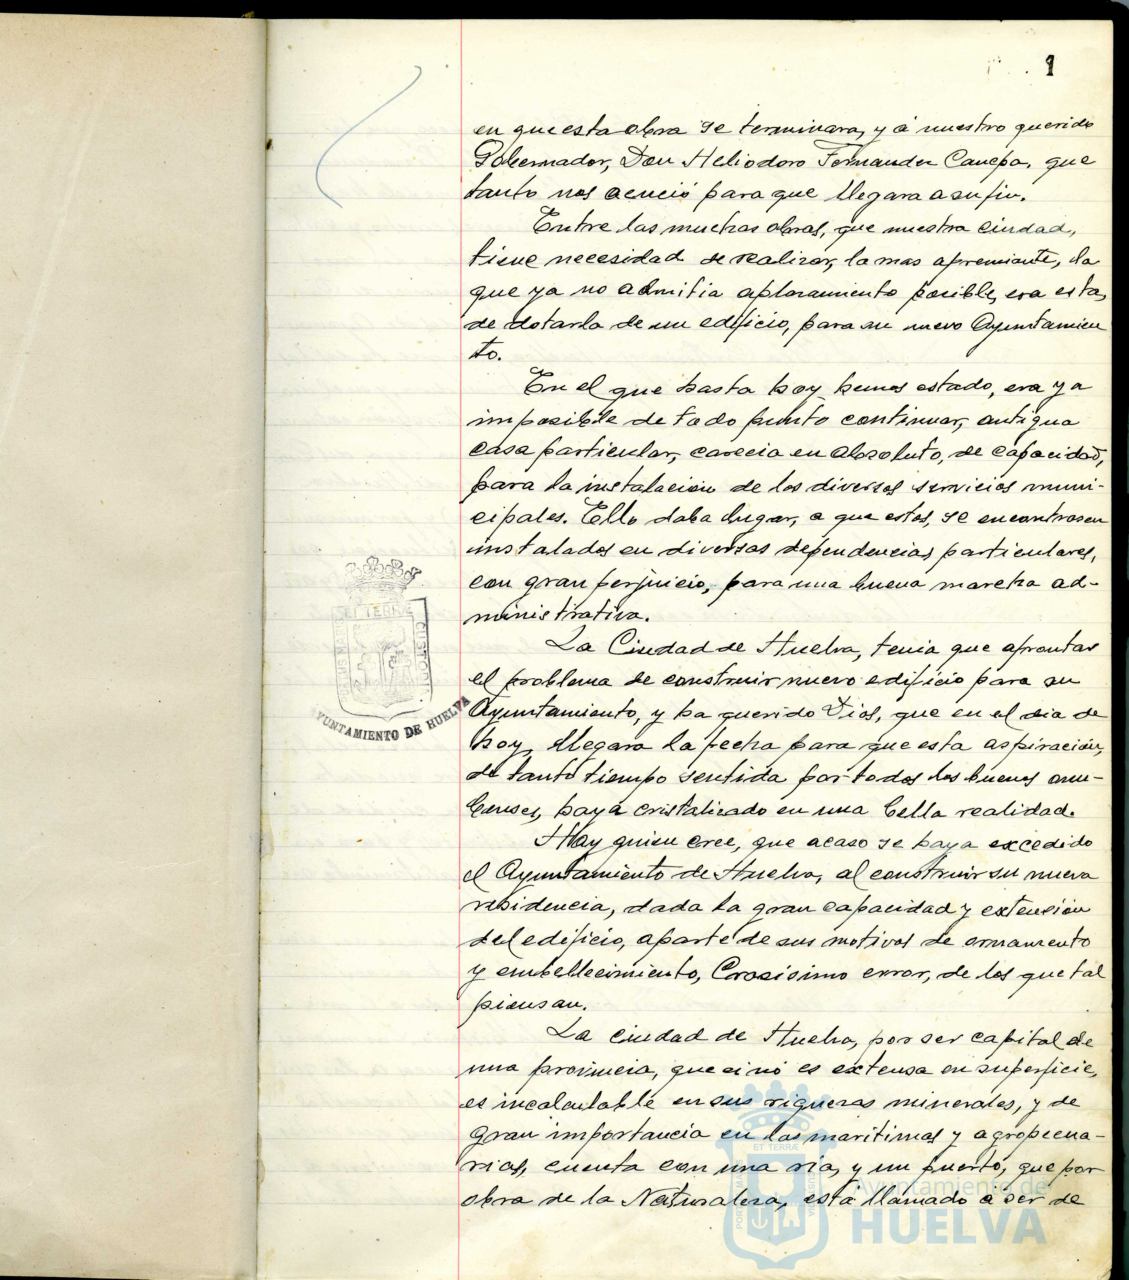 1
en que esta obra se terminara, y á nuestro querido
Gobernador, Don Heliodoro Fernandez Canepa, que
tanto nos acució para que llegara a su fin.
Entre las muchas obras, que nuestra ciudad,
tiene necesidad de realizar, la mas apremiante, la
que ya no admitia aplazamiento posible, era esta,
de dotarla de un edificio, para su nuevo Ayuntamien
to.
En el que hasta hoy hemos estado, era ya
imposible de todo punto continuar, antigua
casa particular, carecia en absoluto, de capacidad,
para la instalación de los diversos servicios muni-
cipales. Ello daba lugar, a que estos, se encontrasen
instalados en diversas dependencias particulares,
con gran perjuicio, para una buena marcha ad-
ministrativa.
La Ciudad de Huelva, tenia que afrontar
el problema de construir nuevo edificio para su
Ayuntamiento, y ha querido Dios, que en el dia de
hoy, llegara la fecha para que esta aspiración,
de tanto tiempo sentida por todos los buenos onu-
benses, haya cristalizado en una bella realidad.
Hay quien cree, que acaso se haya excedido
el Ayuntamiento de Huelva, al construir su nueva
residencia, dada la gran capacidad y extensión
del edificio, aparte de sus motivos de ornamento
y embellecimiento, Crasisimo error, de los que tal
piensan.
La ciudad de Huelva, por ser capital de
una provincia, que si nó es extensa en superficie,
es incalculable en sus riquezas minerales, y de
gran importancia en las maritimas y agropecua-
rias, cuenta con una ria, y un puerto, que por
obra de la Naturaleza, está llamado á ser de
ET TERRÆ
CUSTODIT
AYUNTAMIENTO DE HUELVA
ET TERRÆ
Ayuntamiento de
HUELVA